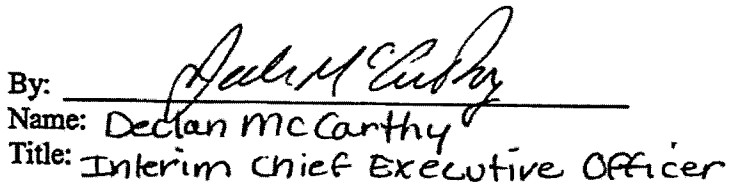 By: Declan McCarthy
Name: Declan McCarthy
Title: Interim Chief Executive Officer